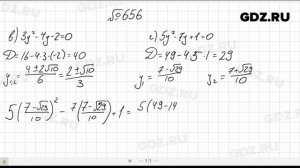 GDZ.RU
№656
в) 3y² - 4y - 2 = 0
D = 16 - 4·3·(-2) = 40
y₁,₂ = (4 ± 2√10)/6 = (2 ± √10)/3
с) 5y² - 7y + 1 = 0
D = 49 - 4·5·1 = 29
y₁ = (7 - √29)/10 y₂ = (7 + √29)/10
5((7 - √29)/10)² - 7((7 - √29)/10) + 1 = 5(49 - 14
GDZ.RU